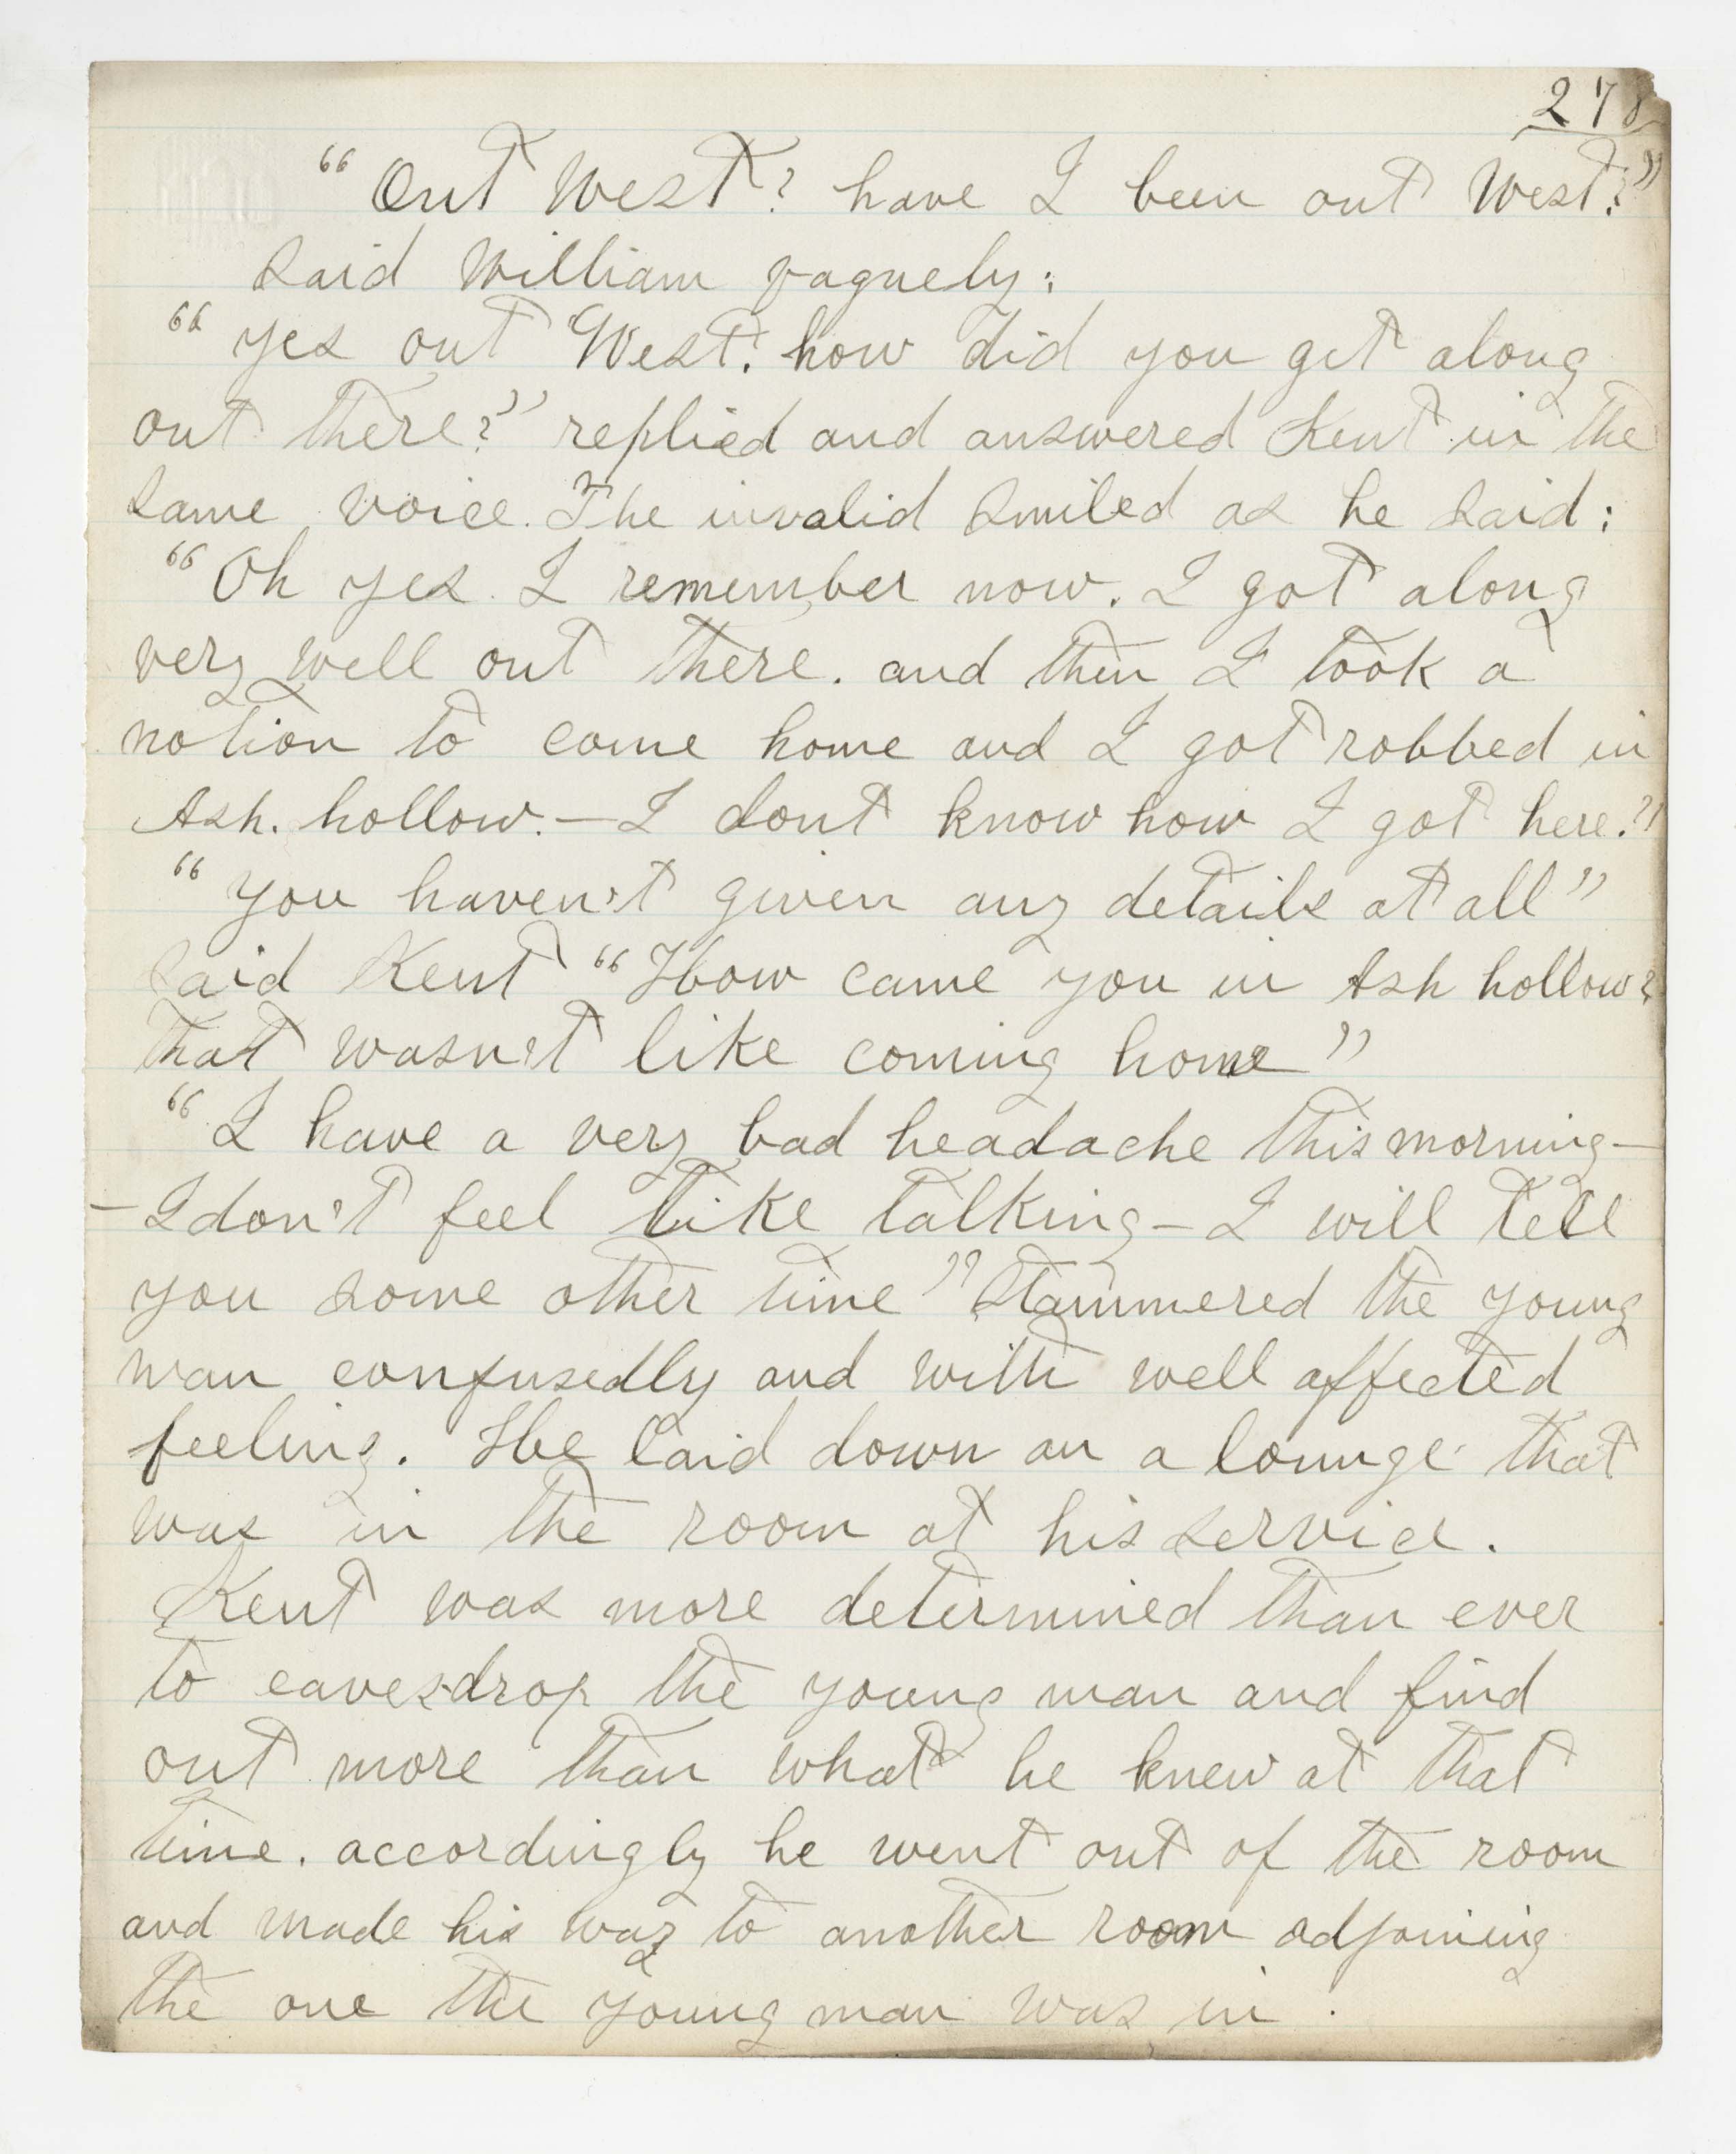 278
"Out West? have I been out West?"
said William vaguely:
"yes out West. how did you get along
out there?" replied and answered Kent in the
same voice. The invalid smiled as he said:
"Oh yes. I remember now. I got along
very well out there. and then I took a
notion to come home and I got robbed in
Ash. hollow.—I dont know how I got here."
"you haven't given any details at all"
said Kent "How came you in Ash hollow?
that wasn't like coming home"
"I have a very bad headache this morning—
—I don't feel like talking—I will tell
you some other time" stammered the young
man confusedly and with well affected
feeling. He laid down on a lounge that
was in the room at his service.
Kent was more determined than ever
to eavesdrop the young man and find
out more than what he knew at that
time. accordingly he went out of the room
and made his way to another room adjoining
the one the young man was in.